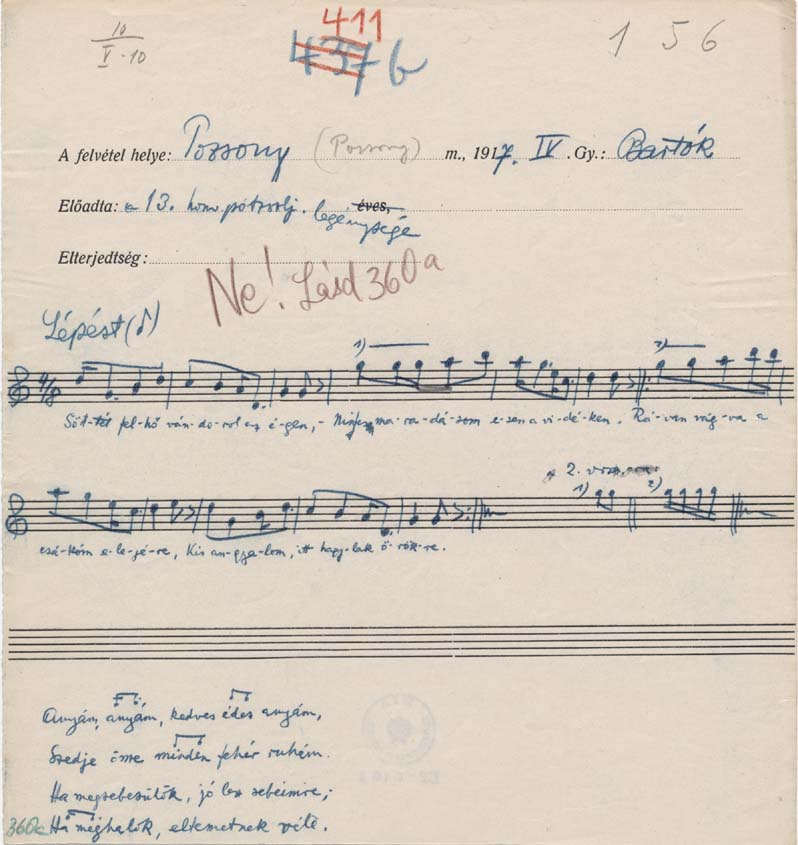 10
V·10
411
437 b
156
A felvétel helye: Pozsony (Pozsony) m., 1917. IV. Gy.: Bartók
Előadta: a 13. honv. pótzolj. legénysége éves,
Elterjedtség:
Ne! Lásd 360a
Lépést
4/8
1) 2)
Söt-tét fel-hő ván-do-rol az é-gen, - Nincsen ma-ra-dá-som e-zen a vi-dé-ken. Rá-van vág-va a
2. vrsz.
1) 2)
csá-kóm e-le-jé-re, Kis an-gya-lom, itt hagy-lak ö-rök-re.
Anyám, anyám, kedves édes anyám,
Szedje össze minden fehér ruhám.
Ha megsebesülök, jó lesz sebeimre,
360a Ha meghalok, eltemetnek véle.